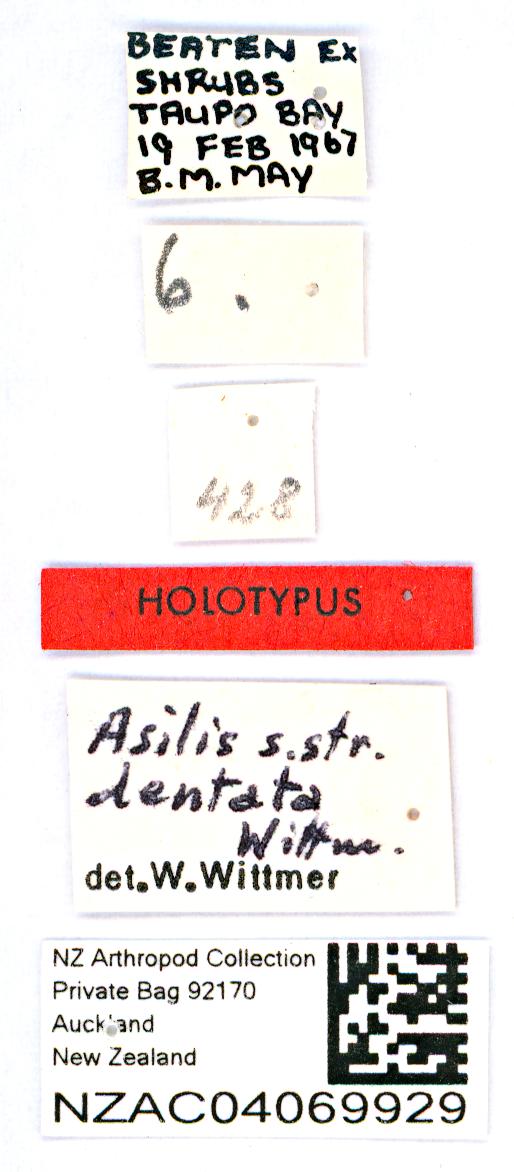 BEATEN EX
SHRUBS
TAUPO BAY
19 FEB 1967
B.M. MAY
6.
428
HOLOTYPUS
Asilis s.str.
dentata
Wittm.
det.W.Wittmer
NZ Arthropod Collection
Private Bag 92170
Auckland
New Zealand
NZAC04069929